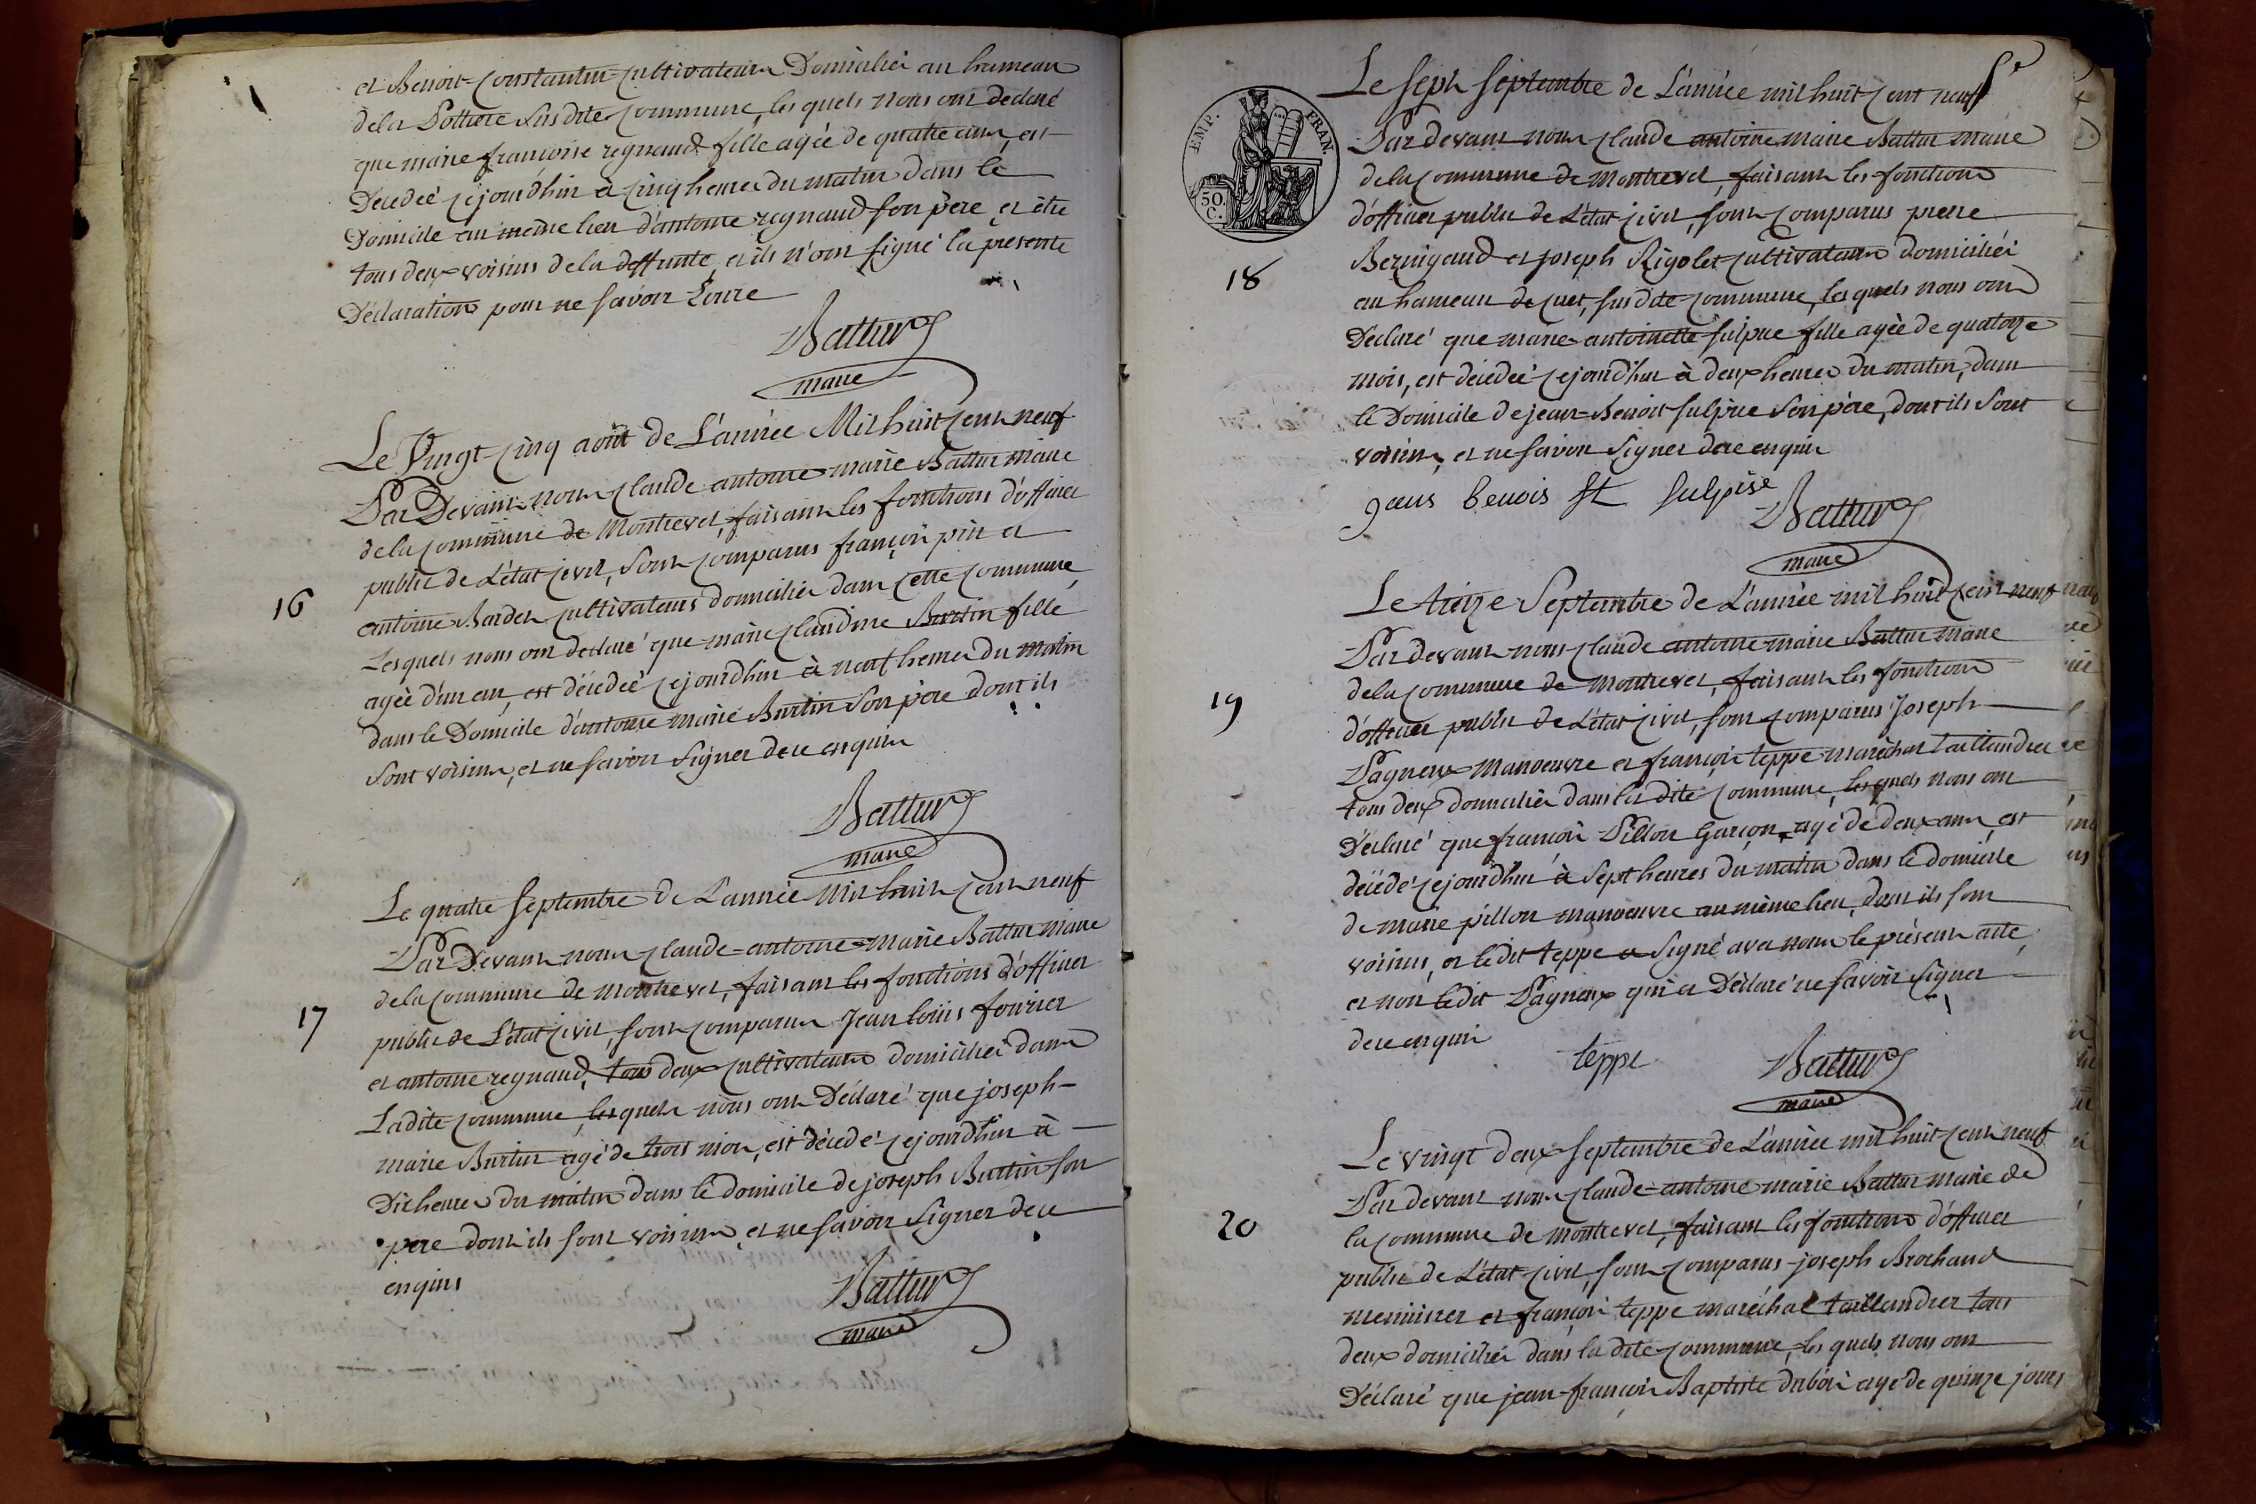 et Benoit Constantin cultivateurs Domiciliés au hameau
de la Pottiere susdite commune, les quels nous ont déclaré
que marie françoise regnaud fille agée de quatre ans, est
Décédée cejourdhui a cinq heures du matin dans le
Domicile au meme lieu d'antoine regnaud son père et être
tous deux voisins de la deffunte, et ils n'ont signé la présente
Déclaration pour ne savoir Ecrire
Battur
maire
Le Vingt cinq août de L'année Mil huit cent neuf
Par Devant nous claude antoine marie Battur maire
de la commune de Montrevel, faisant les fonctions d'officier
public de L'état civil, sont comparus françois pin et
16
antoine Bardet cultivateurs domiciliés dans cette commune,
Lesquels nous ont déclaré que marie claudine Burtin fille
agée d'un an, est décédée cejourdhui à neuf heures du matin
dans le Domicile d'antoine marie Burtin Son père dont ils
sont voisins, et ne savoir signer de ce enquis
Battur
maire
Le quatre septembre de L'année Mil huit cent neuf
Par Devant nous claude antoine marie Battur maire
de la commune de montrevel, faisant les fonctions d'officier
17
public de L'état civil, sont comparus Jean louis fourier
et antoine regnaud, tous deux cultivateurs domiciliés dans
Ladite commune, lesquels nous ont Déclaré que joseph
marie Burtin agé de trois mois, est décédé cejourdhui à
Dix heures du matin dans le domicile de joseph Burtin son
père dont ils sont voisins, et ne savoir signer de ce
enquis
Battur
maire
Le sept septembre de L'année mil huit cent neuf
EMP. FRAN.
50. C.
Par devant nous claude antoine marie Battur maire
de la commune de Montrevel, faisant les fonctions
d'officier public de L'état civil, sont comparus pierre
Bernigaud et joseph Rigolet cultivateurs domiciliés
18
au hameau de cuet, susdite commune, les quels nous ont
Déclaré que marie antoinette sulpice fille agée de quatorze
mois, est décédée cejourdhui à deux heures du matin, dans
le Domicile de jean Benoit sulpice Son père, dont ils sont
voisins, et ne savoir signer de ce enquis
jaus benois St sulpise
Battur
maire
Le treize Septembre de L'année mil huit cent neuf
Par devant nous claude antoine marie Battur maire
de la commune de montrevel, faisant les fonctions
19
d'officier public de L'état civil, sont comparus Joseph
Pagneux manoeuvre et françois teppe maréchal taillandier
tous deux domiciliés dans la dite commune, lesquels nous ont
Déclaré que françois Pillon garçon, agé de deux ans, est
décédé cejourdhui à sept heures du matin dans le domicile
de marie pillon manoeuvre au même lieu, dont ils sont
voisins, et ledit teppe a signé avec nous le présent acte,
et non ledit Pagneux qui a Déclaré ne savoir signer
de ce enquis
teppe
Battur
maire
Le vingt deux septembre de L'année mil huit cent neuf
Par devant nous claude antoine marie Battur maire de
20
la commune de montrevel, faisant les fonctions d'officier
public de L'état civil, sont comparus joseph Brochand
menuisier et françois teppe maréchal taillandier tous
deux domiciliés dans la dite commune, les quels nous ont
Déclaré que jean françois Baptiste dubois agé de quinze jours